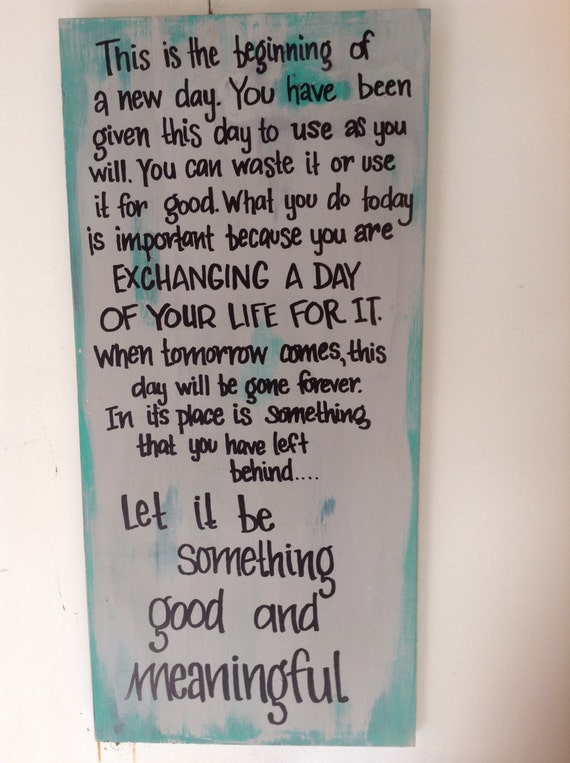 This is the beginning of
a new day. You have been
given this day to use as you
will. You can waste it or use
it for good. What you do today
is important because you are
EXCHANGING A DAY
OF YOUR LIFE FOR IT.
When tomorrow comes, this
day will be gone forever.
In its place is something
that you have left
behind....
Let it be
something
good and
meaningful